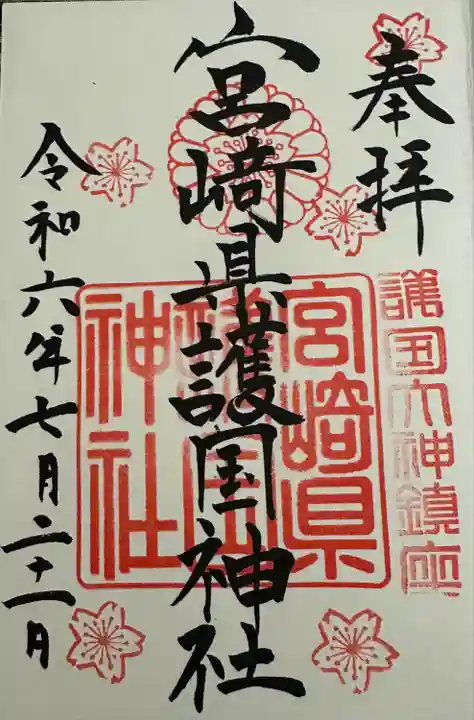 奉拝
護国大神鎮座
宮崎県護国神社
宮崎県護国神社
令和六年七月二十一日